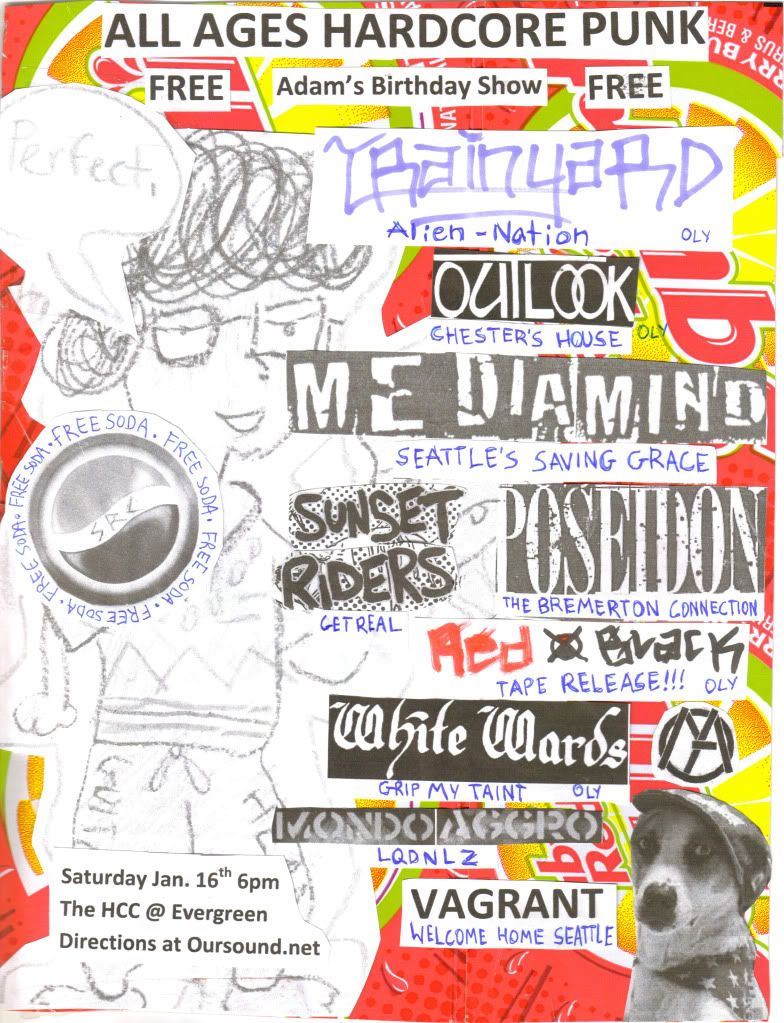 ALL AGES HARDCORE PUNK
FREE Adam's Birthday Show FREE
Perfect,
TRAINYARD
Alien-Nation OLY
OUTLOOK
CHESTER'S HOUSE OLY
MEDIAMIND
SEATTLE'S SAVING GRACE
FREE SODA • FREE SODA • FREE SODA • FREE SODA • FREE SODA • FREE SODA •
SRC
SUNSET
RIDERS
GET REAL
POSEIDON
THE BREMERTON CONNECTION
Red X Black
TAPE RELEASE!!! OLY
White Wards
GRIP MY TAINT OLY
MONDO AGGRO
LQDNLZ
Saturday Jan. 16th 6pm
The HCC @ Evergreen
Directions at Oursound.net
VAGRANT
WELCOME HOME SEATTLE